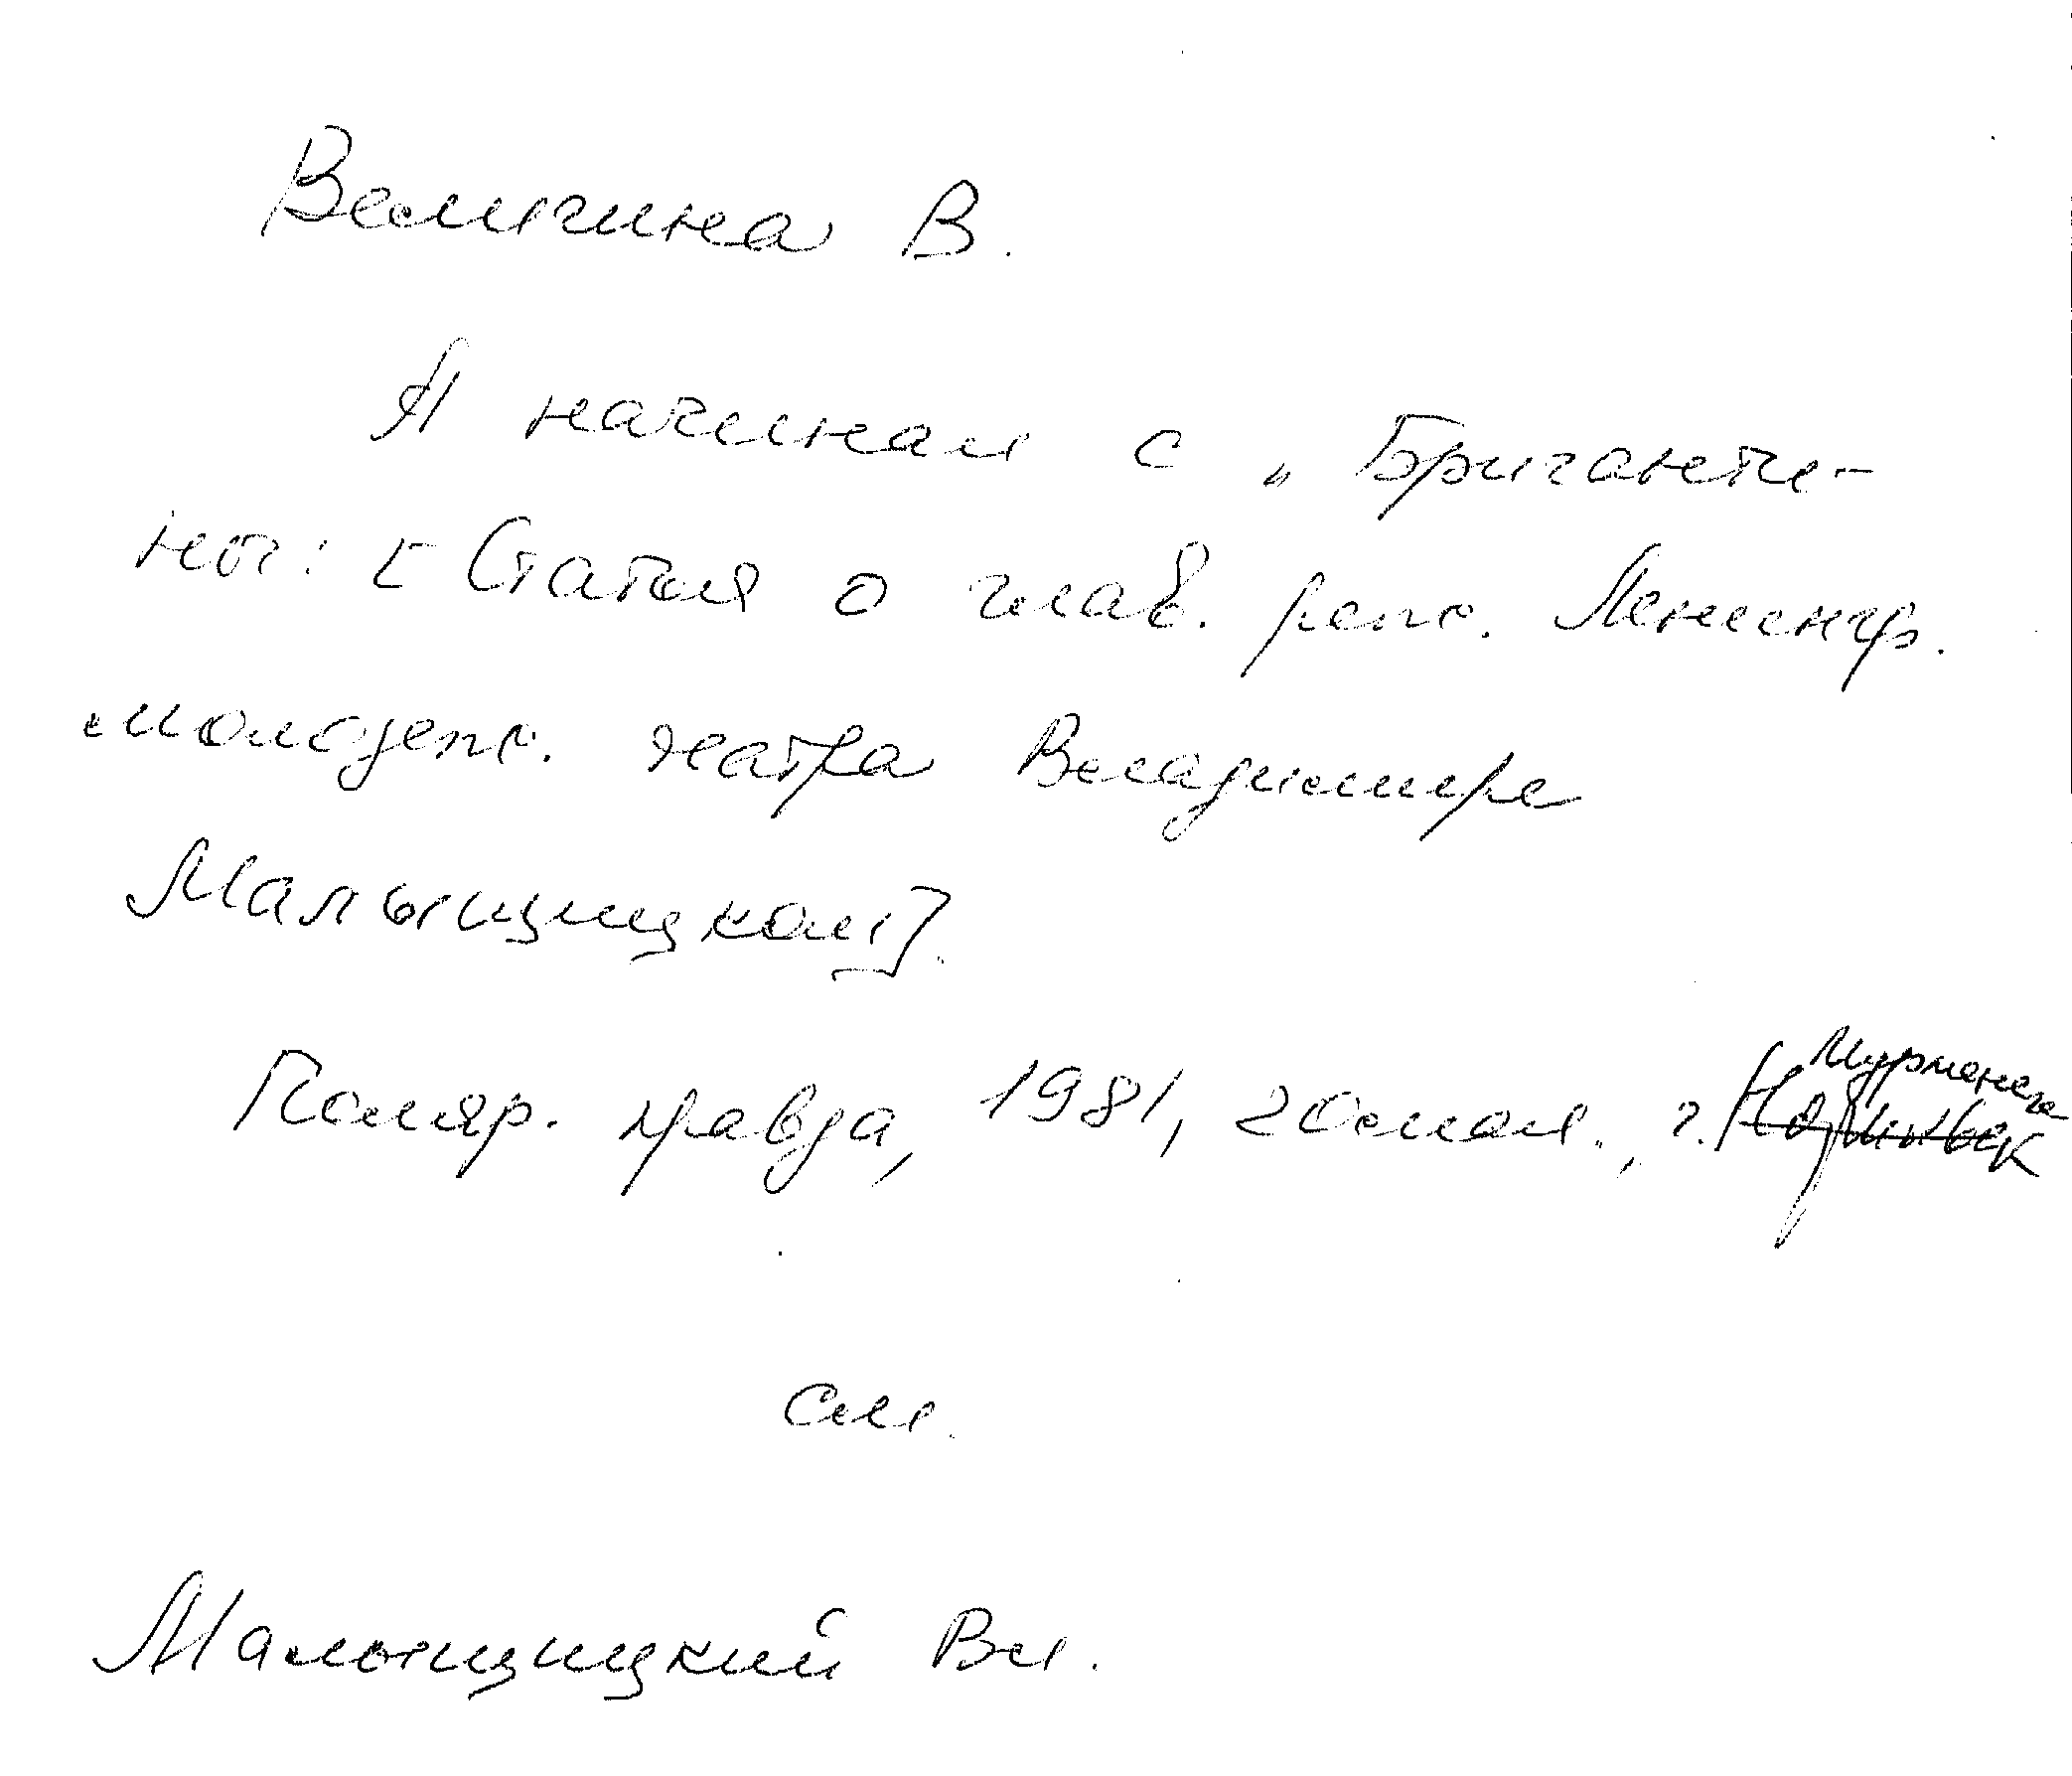 Велигина В.
Я начинал с „Бриганти-
ны: [Статья о глав. реж. Ленингр.
молодежн. театра Владимире
Малыщицком].
Поляр. правда, 1981, 20 мая., г.
Мурманск
см.
Малыщицкий Вл.